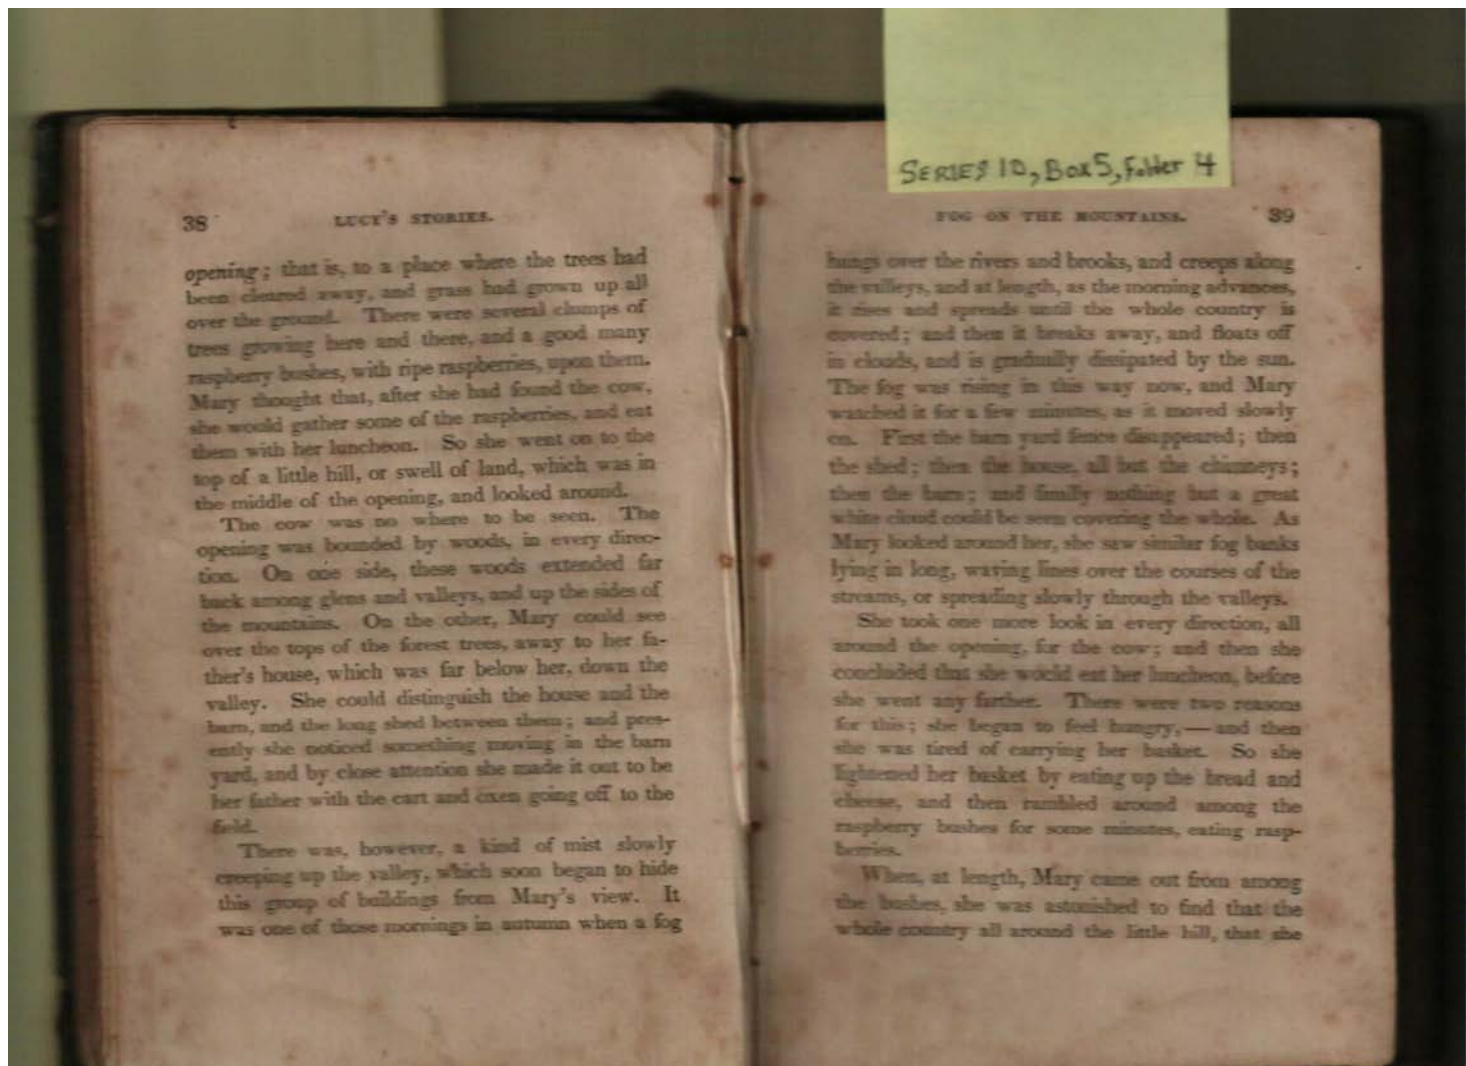 SERIES 10, Box 5, Folder 4
38 LUCY'S STORIES.
opening; that is, to a place where the trees had
been cleared away, and grass had grown up all
over the ground. There were several clumps of
trees growing here and there, and a good many
raspberry bushes, with ripe raspberries, upon them.
Mary thought that, after she had found the cow,
she would gather some of the raspberries, and eat
them with her luncheon. So she went on to the
top of a little hill, or swell of land, which was in
the middle of the opening, and looked around.
The cow was no where to be seen. The
opening was bounded by woods, in every direc-
tion. On one side, these woods extended far
back among glens and valleys, and up the sides of
the mountains. On the other, Mary could see
over the tops of the forest trees, away to her fa-
ther's house, which was far below her, down the
valley. She could distinguish the house and the
barn, and the long shed between them; and pres-
ently she noticed something moving in the barn
yard, and by close attention she made it out to be
her father with the cart and oxen going off to the
field.
There was, however, a kind of mist slowly
creeping up the valley, which soon began to hide
this group of buildings from Mary's view. It
was one of those mornings in autumn when a fog
FOG ON THE MOUNTAINS. 39
hangs over the rivers and brooks, and creeps along
the valleys, and at length, as the morning advances,
it rises and spreads until the whole country is
covered; and then it breaks away, and floats off
in clouds, and is gradually dissipated by the sun.
The fog was rising in this way now, and Mary
watched it for a few minutes, as it moved slowly
on. First the barn yard fence disappeared; then
the shed; then the house, all but the chimneys;
then the barn; and finally nothing but a great
white cloud could be seen covering the whole. As
Mary looked around her, she saw similar fog banks
lying in long, waving lines over the courses of the
streams, or spreading slowly through the valleys.
She took one more look in every direction, all
around the opening, for the cow; and then she
concluded that she would eat her luncheon, before
she went any farther. There were two reasons
for this; she began to feel hungry,—and then
she was tired of carrying her basket. So she
lightened her basket by eating up the bread and
cheese, and then rambled around among the
raspberry bushes for some minutes, eating rasp-
berries.
When, at length, Mary came out from among
the bushes, she was astonished to find that the
whole country all around the little hill, that she